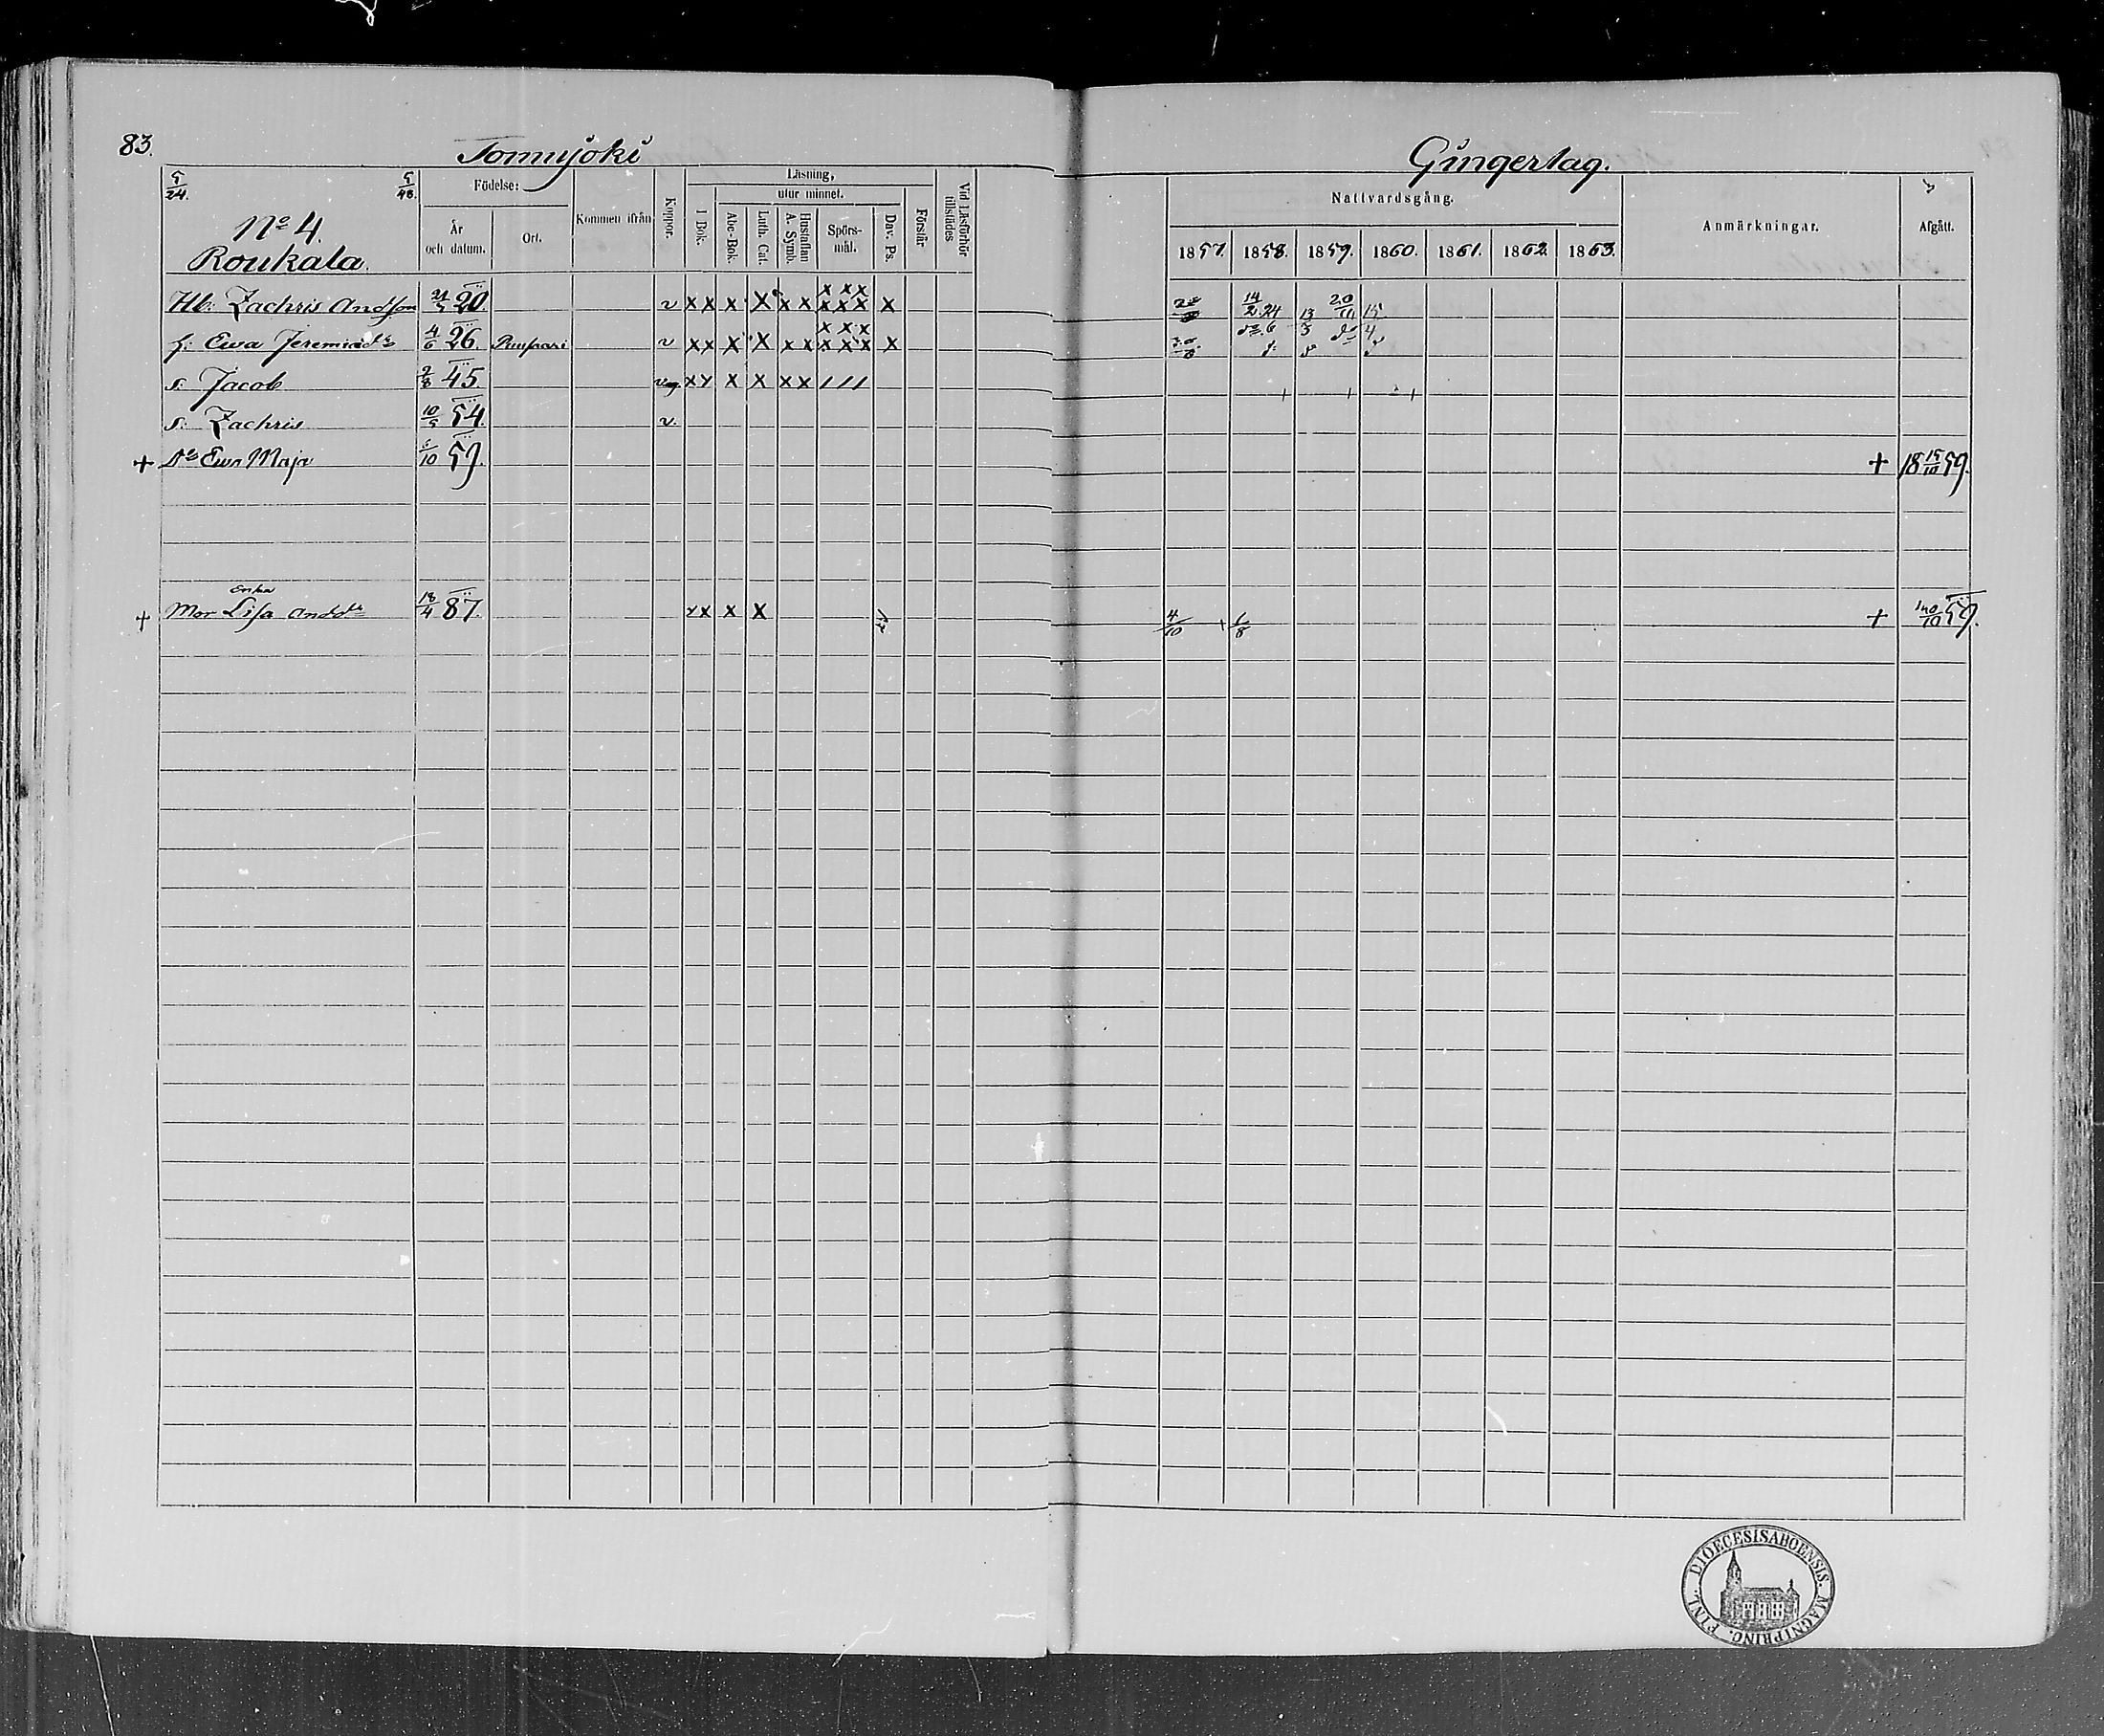 83.
Tomujoki
5/24. 5/48.
No 4.
Roukala.
Födelse:
År och datum.
Ort.
Kommen ifrån
Koppor.
Läsning,
utur minnet.
I Bok.
Abc-Bok.
Luth. Cat.
Hustaflan A. Symb.
Spörs-mål.
Dav. Ps.
Förstår
Vid Läsförhör tillstädes
Hb: Zachris Andsson 20. v x x x x x x x x x x x x x
h: Ewa Jeremiædr 4/6 26. v x x x x x x x x x x x x x
s: Jacob 2/8 45. x x x x x x / / /
s: Zachris 10/5 54. v.
+ Dr Ewa Maja /10 59.
Erika
+ Mor Lisa Andsdr 18/4 87. x x x x
Gingertag.
Nattvardsgång.
1857. 1858. 1859. 1860. 1861. 1862. 1863.
Anmärkningar.
Afgått.
14/2 24 13 20/11 15
6 3 4
+ 18 15/10 59.
4/10 /8 + /10 59.
DIOECESIS ABOENSIS. MAGNI PRINC. FINL.